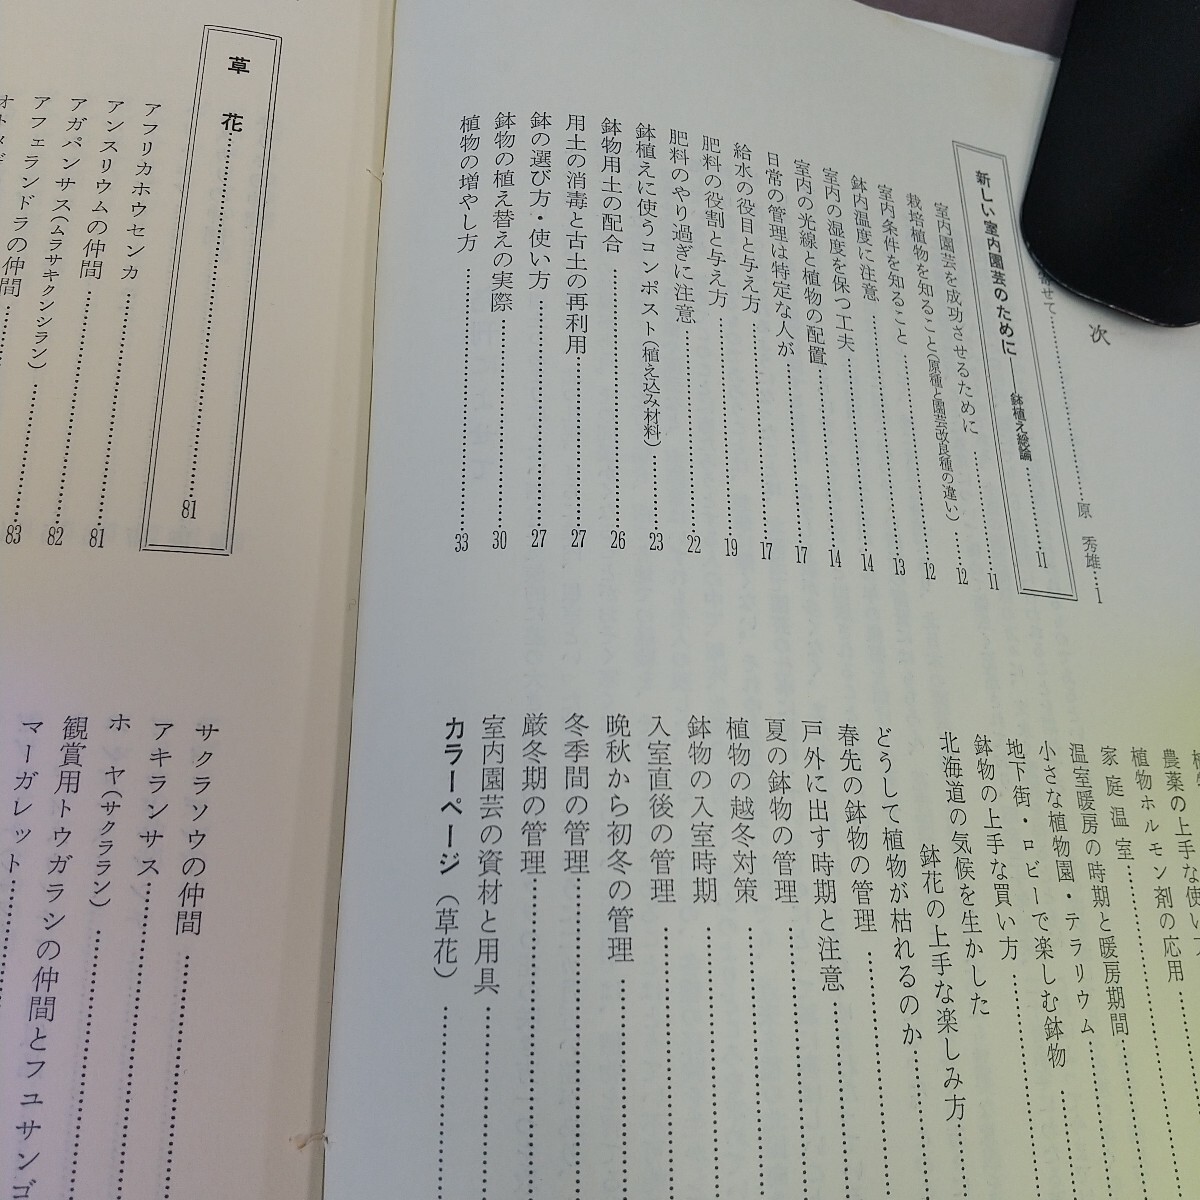 次
寄せて……原 秀雄…1
新しい室内園芸のために――鉢植え総論……11
室内園芸を成功させるために……11
栽培植物を知ること(原種と園芸改良種の違い)……12
室内条件を知ること……12
鉢内温度に注意……13
室内の湿度を保つ工夫……14
室内の光線と植物の配置……14
日常の管理は特定な人が……17
給水の役目と与え方……17
肥料の役割と与え方……19
肥料のやり過ぎに注意……22
鉢植えに使うコンポスト(植え込み材料)……23
鉢物用土の配合……26
用土の消毒と古土の再利用……27
鉢の選び方・使い方……27
鉢物の植え替えの実際……30
植物の増やし方……33
農薬の上手な使い
植物ホルモン剤の応用
家庭温室……
温室暖房の時期と暖房期間
小さな植物園・テラリウム……
地下街・ロビーで楽しむ鉢物
鉢物の上手な買い方……
北海道の気候を生かした
鉢花の上手な楽しみ方……
どうして植物が枯れるのか……
春先の鉢物の管理……
戸外に出す時期と注意……
夏の鉢物の管理……
植物の越冬対策……
鉢物の入室時期……
入室直後の管理……
晩秋から初冬の管理……
冬季間の管理……
厳冬期の管理……
室内園芸の資材と用具……
カラーページ(草花)……
草花……81
アフリカホウセンカ……81
アンスリウムの仲間……82
アガパンサス(ムラサキクンシラン)……83
アフェランドラの仲間……
サクラソウの仲間……
アキランサス……
ホンヤ(サクララン)……
観賞用トウガラシの仲間とフユサンゴ
マーガレット……